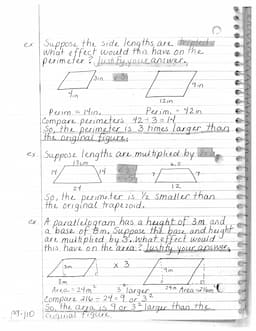 ex Suppose the side lengths are
What effect would this have on the
perimeter? Justify your answer.
3in
4in
9in
12in
Perim = 14in.
Perim. = 42in
Compare perimeters 42÷3=14
So, the perimeter is 3 times larger than
the original figure.
ex Suppose lengths are multiplied by
14
14
7
7
24
12
So, the perimeter is ½ smaller than
the original trapezoid.
ex A parallelogram has a height of 3m and
a base of 8m. Suppose the base and height
are multiplied by 3. What effect would
this have on the area? Justify your answer.
3m
x 3
9m
8m
Area = 24m²
3² larger
24m Area = 216m²
Compare 216÷24=9 or 3²
So, the area is 9 or 3² larger than the
original figure